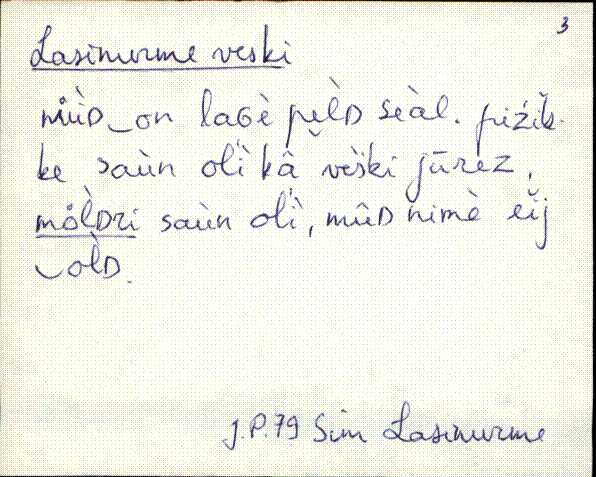 3
Lasinurme veski
mǜD‿on laGè pèlD sèal. piźik-
ke saùn oli kâ vèški jūrez,
mȍlDri saùn oli, mûD nimè eij
‿olD.
J.P.79 Sim Lasinurme